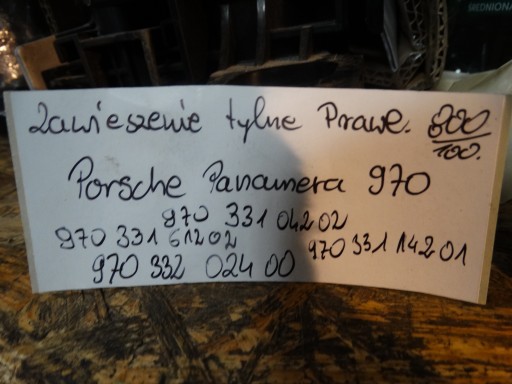 Zawieszenie tylne Prawe. 800
100.
Porsche Panamera 970
970 331 042 02
970 331 612 02
970 331 142 01
970 332 024 00